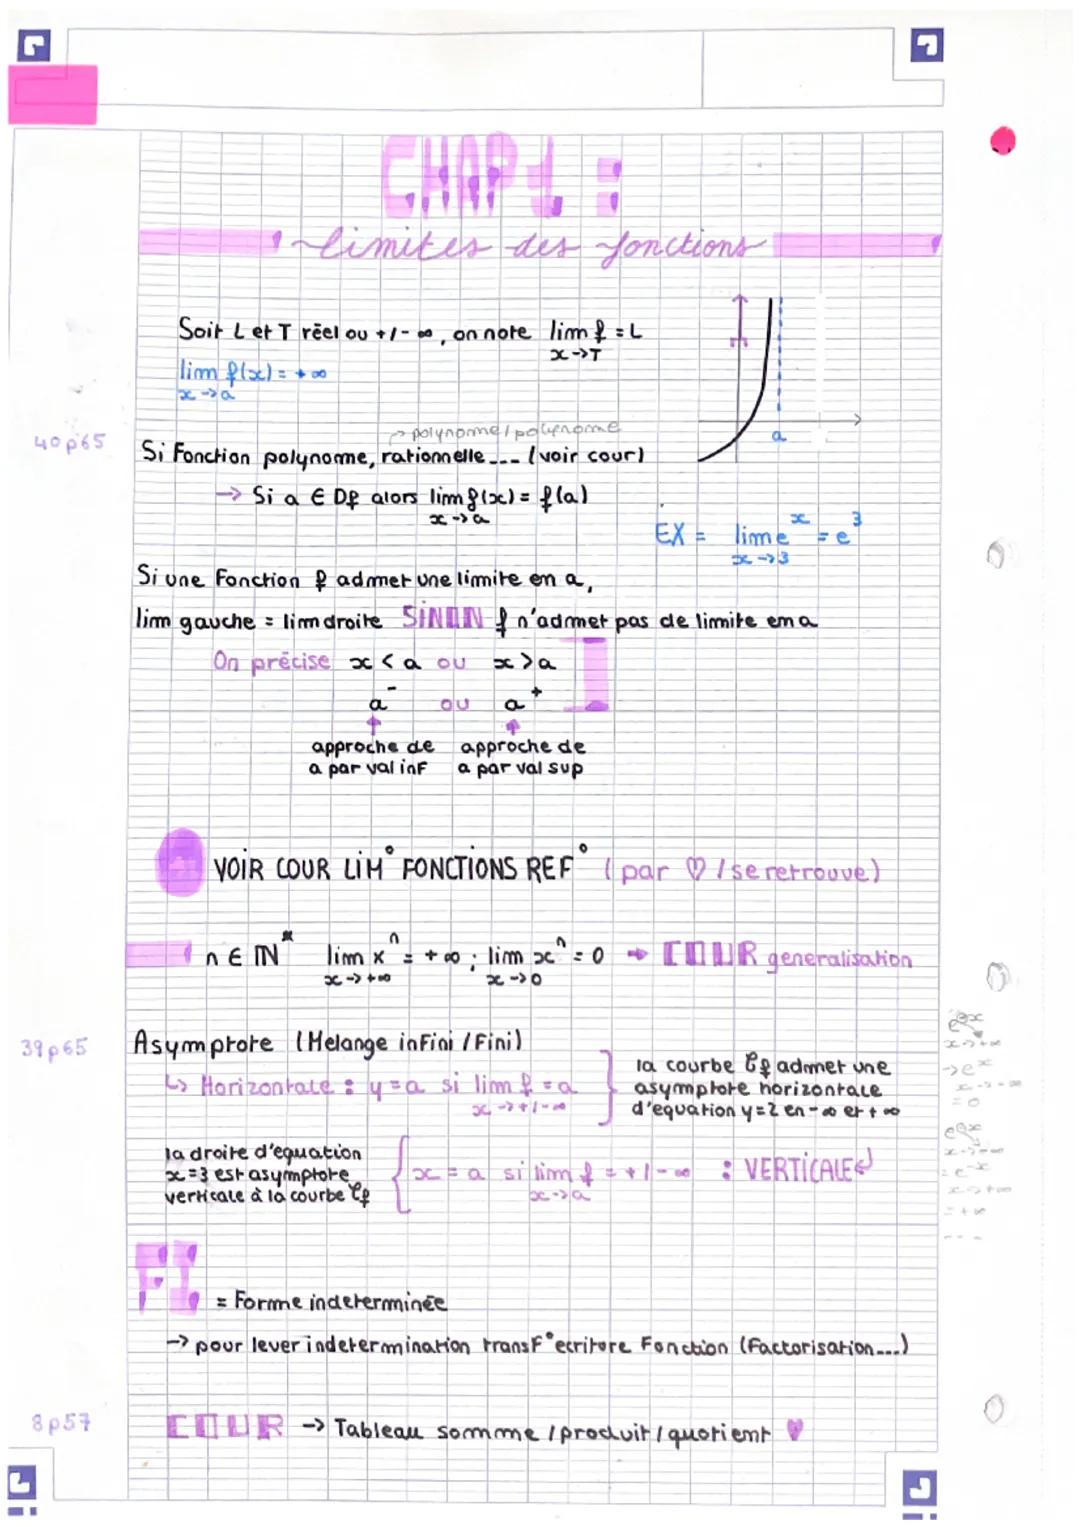 CHAP 1 :
limites des fonctions
Soit L et T réel ou +/- ∞, on note lim f = L
x->T
lim f(x) = +∞
x->a
a
40 p 65
-> polynome / polynome
Si Fonction polynome, rationnelle... (voir cour)
-> Si a ∈ Df alors lim f(x) = f(a)
x->a
EX = lim e^x = e^3
x->3
Si une Fonction f admet une limite en a,
lim gauche = lim droite SINON f n'admet pas de limite en a
On précise x < a ou x > a
a⁻ ou a⁺
approche de approche de
a par val inf a par val sup
VOIR COUR LIM° FONCTIONS REF° (par ♡ / se retrouve)
n ∈ IN* lim x^n = +∞ ; lim x^n = 0 -> COUR generalisation
x->+∞ x->0
39 p 65
Asymptote (Melange infini / Fini)
↳ Horizontale : y = a si lim f = a
x->+/-∞
la courbe Cf admet une
asymptote horizontale
d'equation y=2 en -∞ et +∞
la droite d'equation
x=3 est asymptote
verticale à la courbe Cf
x = a si lim f = +/-∞ : VERTICALE
x->a
-> e^x
x->-∞
= 0
= e^-x
x->+∞
= +∞
---
FI = Forme indeterminée
-> pour lever indetermination transf° ecriture Fonction (Factorisation...)
8 p 57
COUR -> Tableau somme / produit / quotient ♥